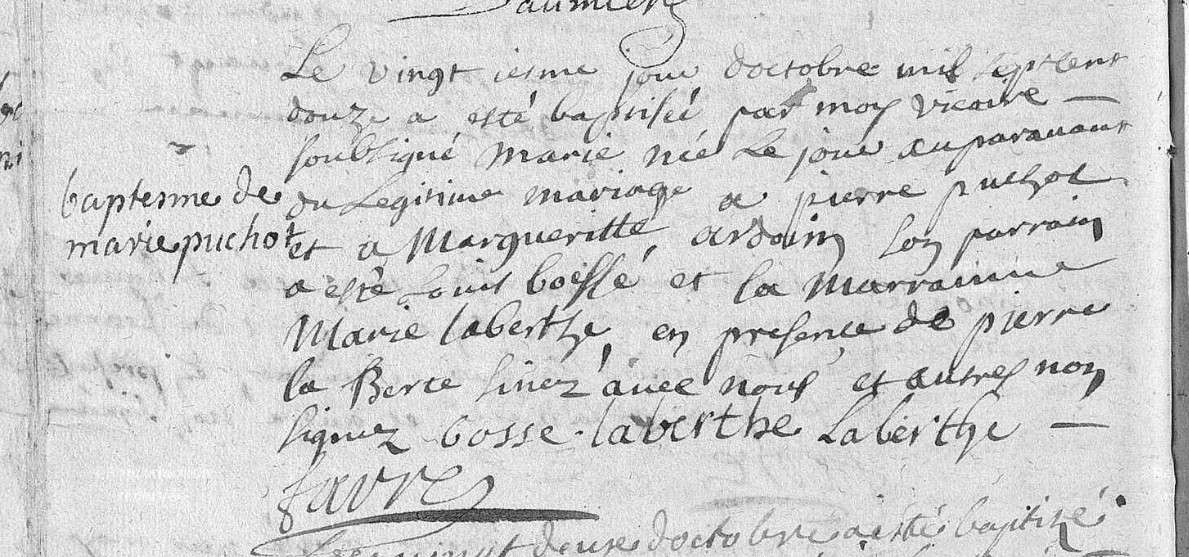 Saumiere
Le vingt iesme jour doctobre mil septcent
douze a esté baptiséé par moy vicaire
soubsigné marie néé Le jour auparavant
baptesme de
marie puchot
du Legitime mariage a pierre puchot
et a Margueritte ardoin son parrain
a esté Louis boessé et la Marrainne
Marie laberthe, en presence de pierre
la Berte sinez avec nous et autres non
signez bosse laberthe Laberthe
favre
Le vingt deux doctobre a esté baptizé